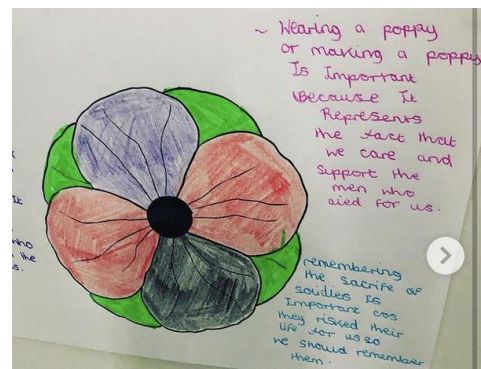 ~ Wearing a poppy
or making a poppy
Is Important
Because It
Represents
the fact that
we care and
support the
men who
died for us.
remembering
the sacrife of
soidies Is
Important cos
they risked their
life for us so
we should remember
them.
It
who
the
s.